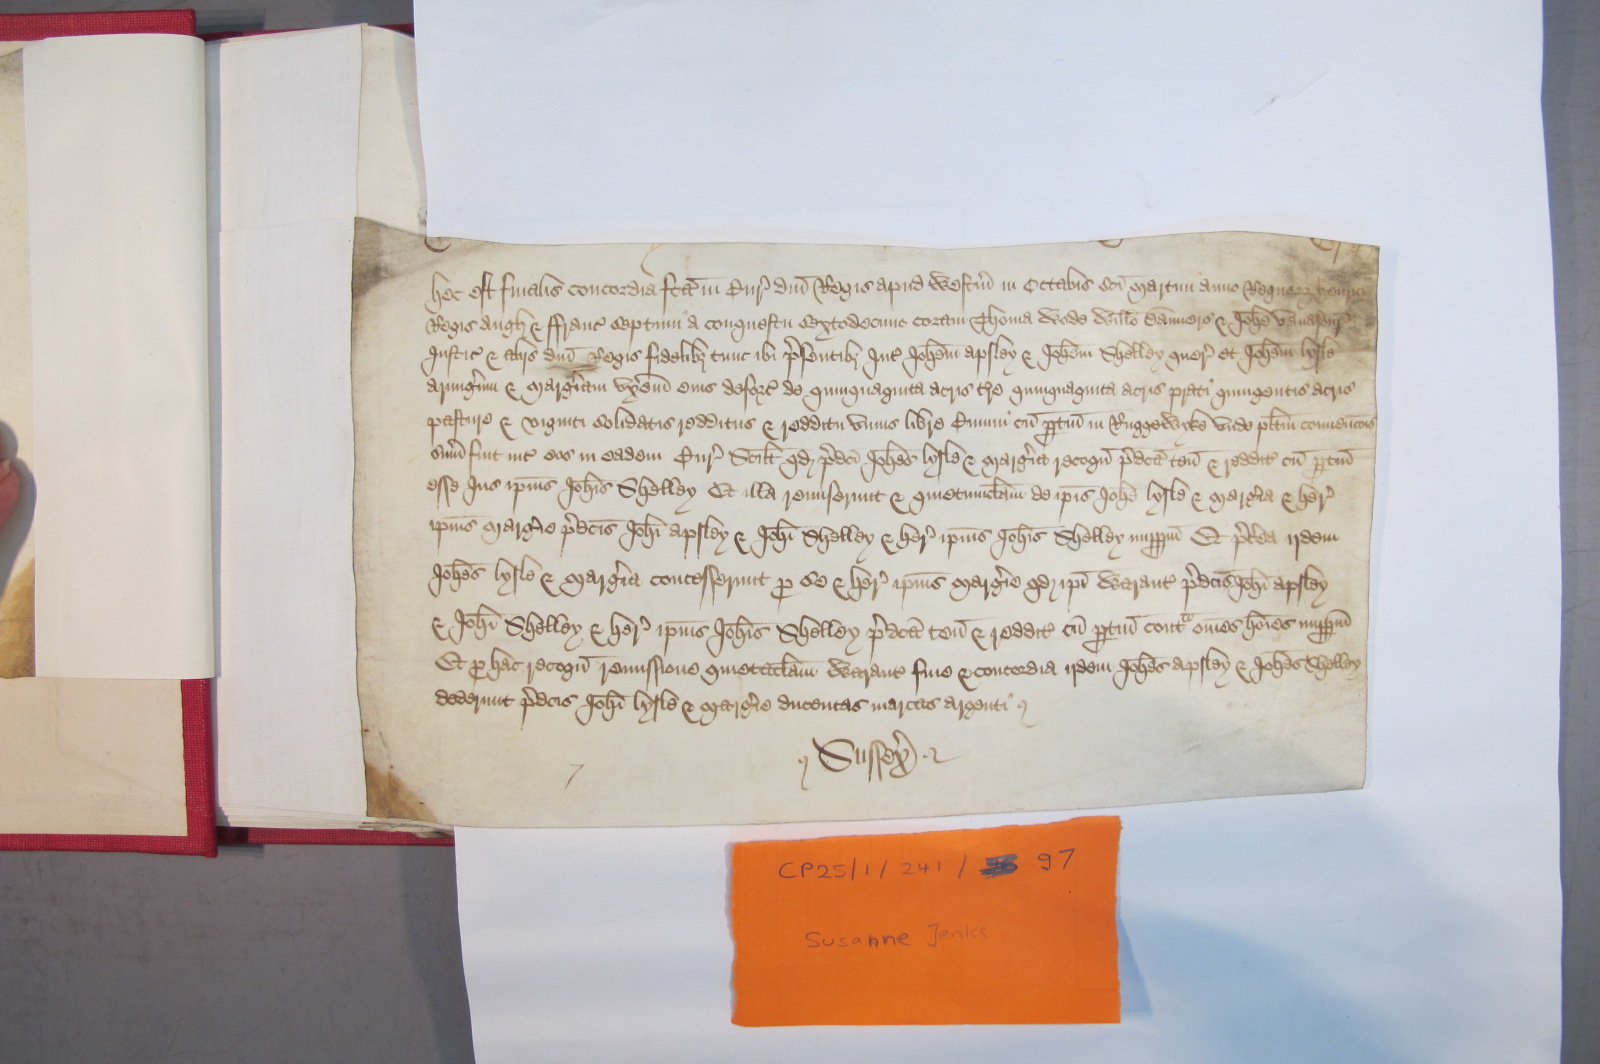 Hec est finalis concordia fc̃a in Cur̃ dñi Regis apud Westm̃ in Octabis Sc̃i Martini anno Regnor̃ Henrici
Regis Angl̃ & Franc̃ septimi a conquestu sextodecimo coram Thoma Wode Will̃o Danvers & Joh̃e Vavasour
Justic̃ & aliis dñi Regis fidelibȝ tunc ibi p̃sentibȝ Int̃ Joh̃em Apsley & Joh̃em Shelley quer̃ et Joh̃em Lysle
armig̃um & Marg̃iam vx̃em eius deforc̃ de quinquaginta acris t̃re quinquaginta acris prati quingentis acris
pasture & viginti solidatis redditus & redditu vnius libre Cimini cũ p̱tiñ in Ruggewyke vnde pl̃itm̃ convenc̃ois
sum̃ fuit int̃ eos in eadem Cur̃ Scil̃t qđ p̃dc̃i Joh̃es Lysle & Marg̃ia recogñ p̃dc̃a teñ & reddit̃ cũ p̱tiñ
esse Jus ip̃ius Joh̃is Shelley Et illa remiserunt & quietumclam̃ de ip̃is Joh̃e Lysle & Marg̃ia & her̃
ip̃ius Marg̃ie p̃dc̃is Joh̃i Apsley & Joh̃i Shelley & her̃ ip̃ius Joh̃is Shelley imp̱p̱m̃ Et p̃t̃ea ijdem
Joh̃es Lysle & Marg̃ia concesserunt p̱ se & her̃ ip̃ius Marg̃ie qđ ip̃i Warant̃ p̃dc̃is Joh̃i Apsley
& Joh̃i Shelley & her̃ ip̃ius Joh̃is Shelley p̃dc̃a teñ & reddit̃ cũ p̱tiñ contᵃ om̃es hoĩes imp̱p̱m̃
Et p̱ hac recogñ remissione quietaclam̃ Warant̃ fine & concordia ijdem Joh̃es Apsley & Joh̃es Shelley
dederunt p̃dc̃is Joh̃i Lysle & Marg̃ie ducentas marcas argenti
Sussex̃
7
CP25/1/241/ 97
Susanne Jenks